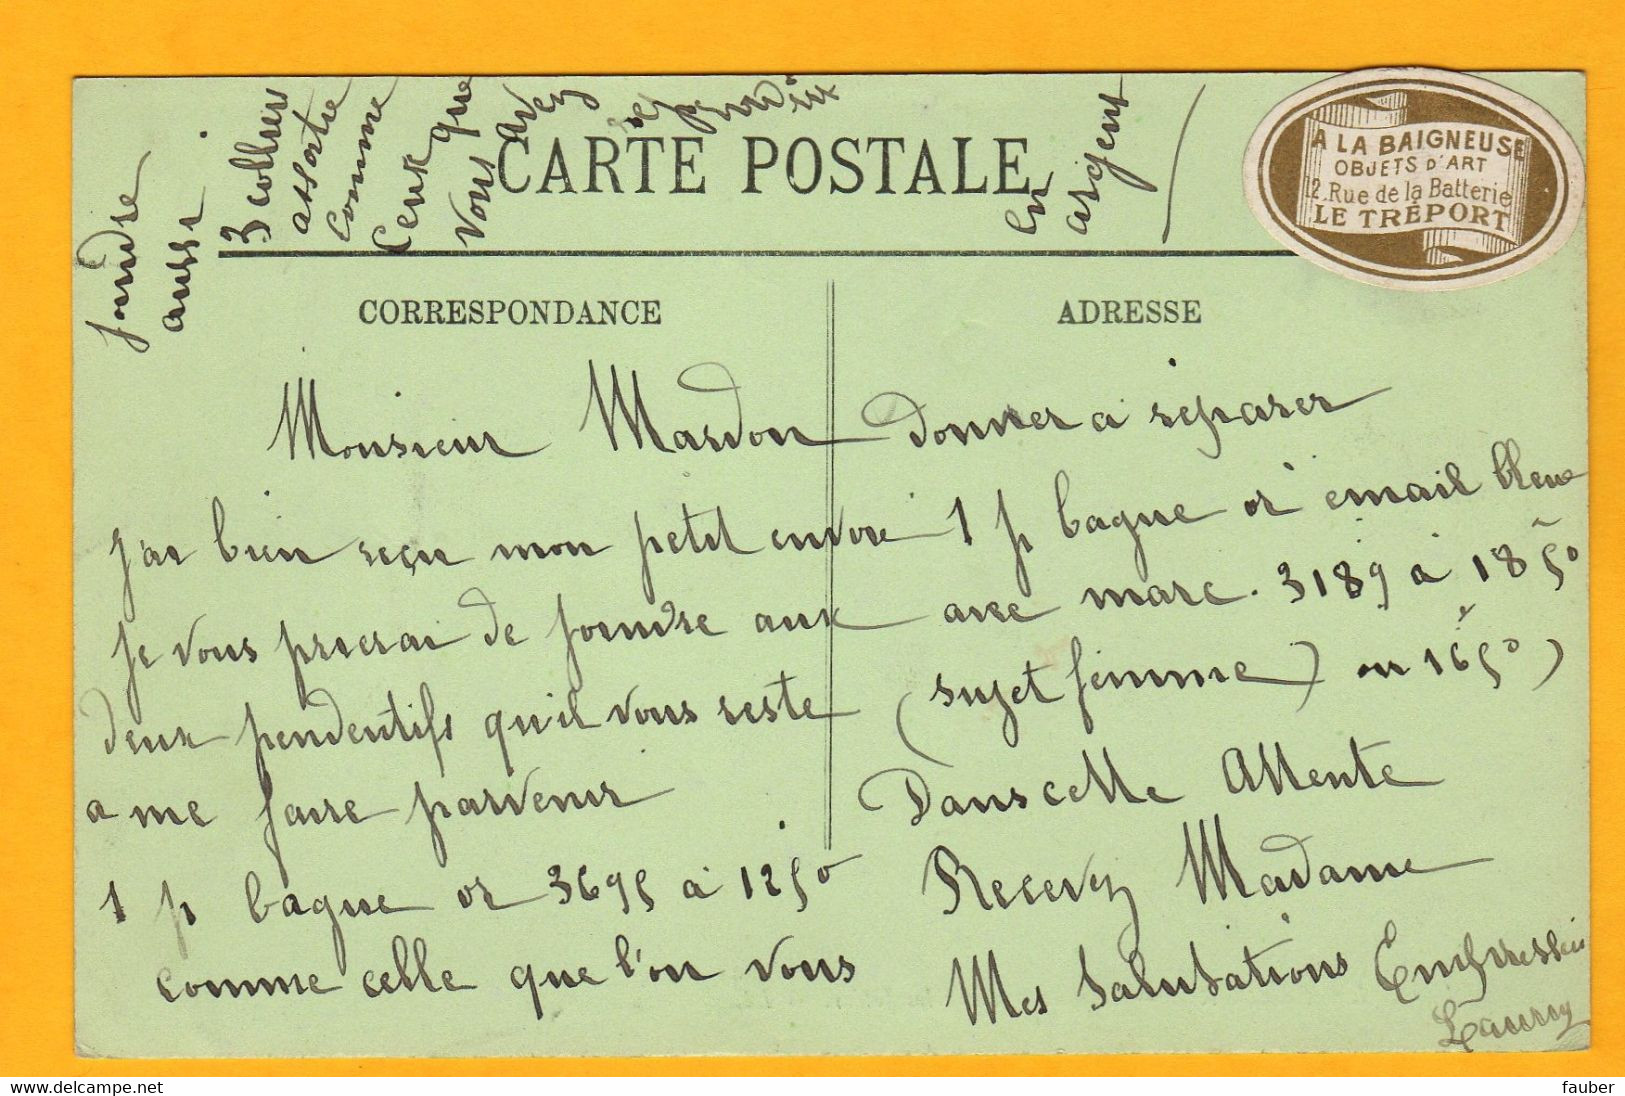 joindre
aussi
3 colliers
assortie
comme
ceux que
vous avez
en
argent
CARTE POSTALE
A LA BAIGNEUSE
OBJETS D'ART
12. Rue de la Batterie
LE TRÉPORT
CORRESPONDANCE
ADRESSE
Monsieur Mardon
J'ai bien reçu mon petit envoi
je vous prierai de joindre aux
deux pendentifs qu'il vous reste
a me faire parvenir
1 p bague or 3695 à 12 50
comme celle que l'on vous
donner a réparer
1 p bague or email bleue
avec marc. 3189 à 18 50
(sujet femme) ou 16 50)
Dans cette Attente
Recevez Madame
Mes Salutations Empressées
fauber